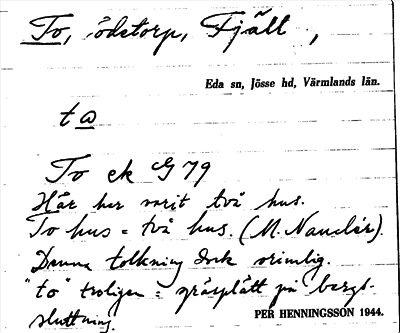 To, ödetorp, Fjäll,
Eda sn, Jösse hd, Värmlands län.
ta
To ek G 79
Här har varit två hus.
To hus = två hus. (M. Nauclér).
Denna tolkning dock orimlig.
"to" troligen = gräsplätt på bergs-
sluttning.
PER HENNINGSSON 1944.